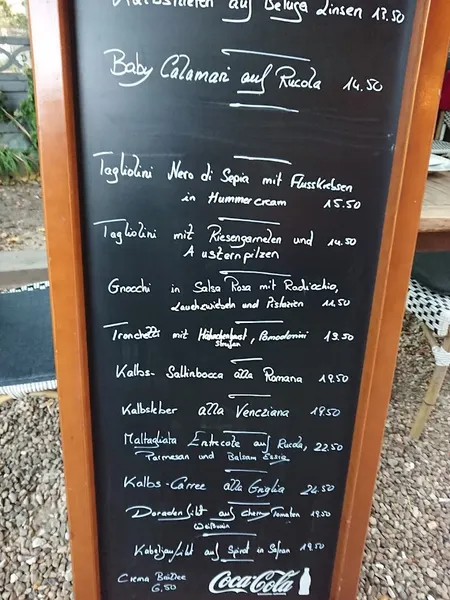 auf Beluga Linsen 13.50
Baby Calamari auf Rucola 14.50
Tagliolini Nero di Sepia mit Flusskrebsen
in Hummercream 15.50
Tagliolini mit Riesengarnelen und 14.50
Austernpilzen
Gnocchi in Salsa Rosa mit Radicchio,
Lauchzwiebeln und Pistazien 11.50
mit Hähnchenbrust, Pomodorini 13.50
streifen
Kalbs- Saltinbocca alla Romana 19.50
Kalbsleber alla Veneziana 19.50
Maltagliata Entrecote auf Rucola, 22.50
Parmesan und Balsam Essig
Kalbs-Carree alla Griglia 24.50
Doradenfilet auf Cherry Tomaten 19.50
Weißwein
Kabeljaufilet auf Spinat in Safran 19.50
Crema
6,50
Coca-Cola